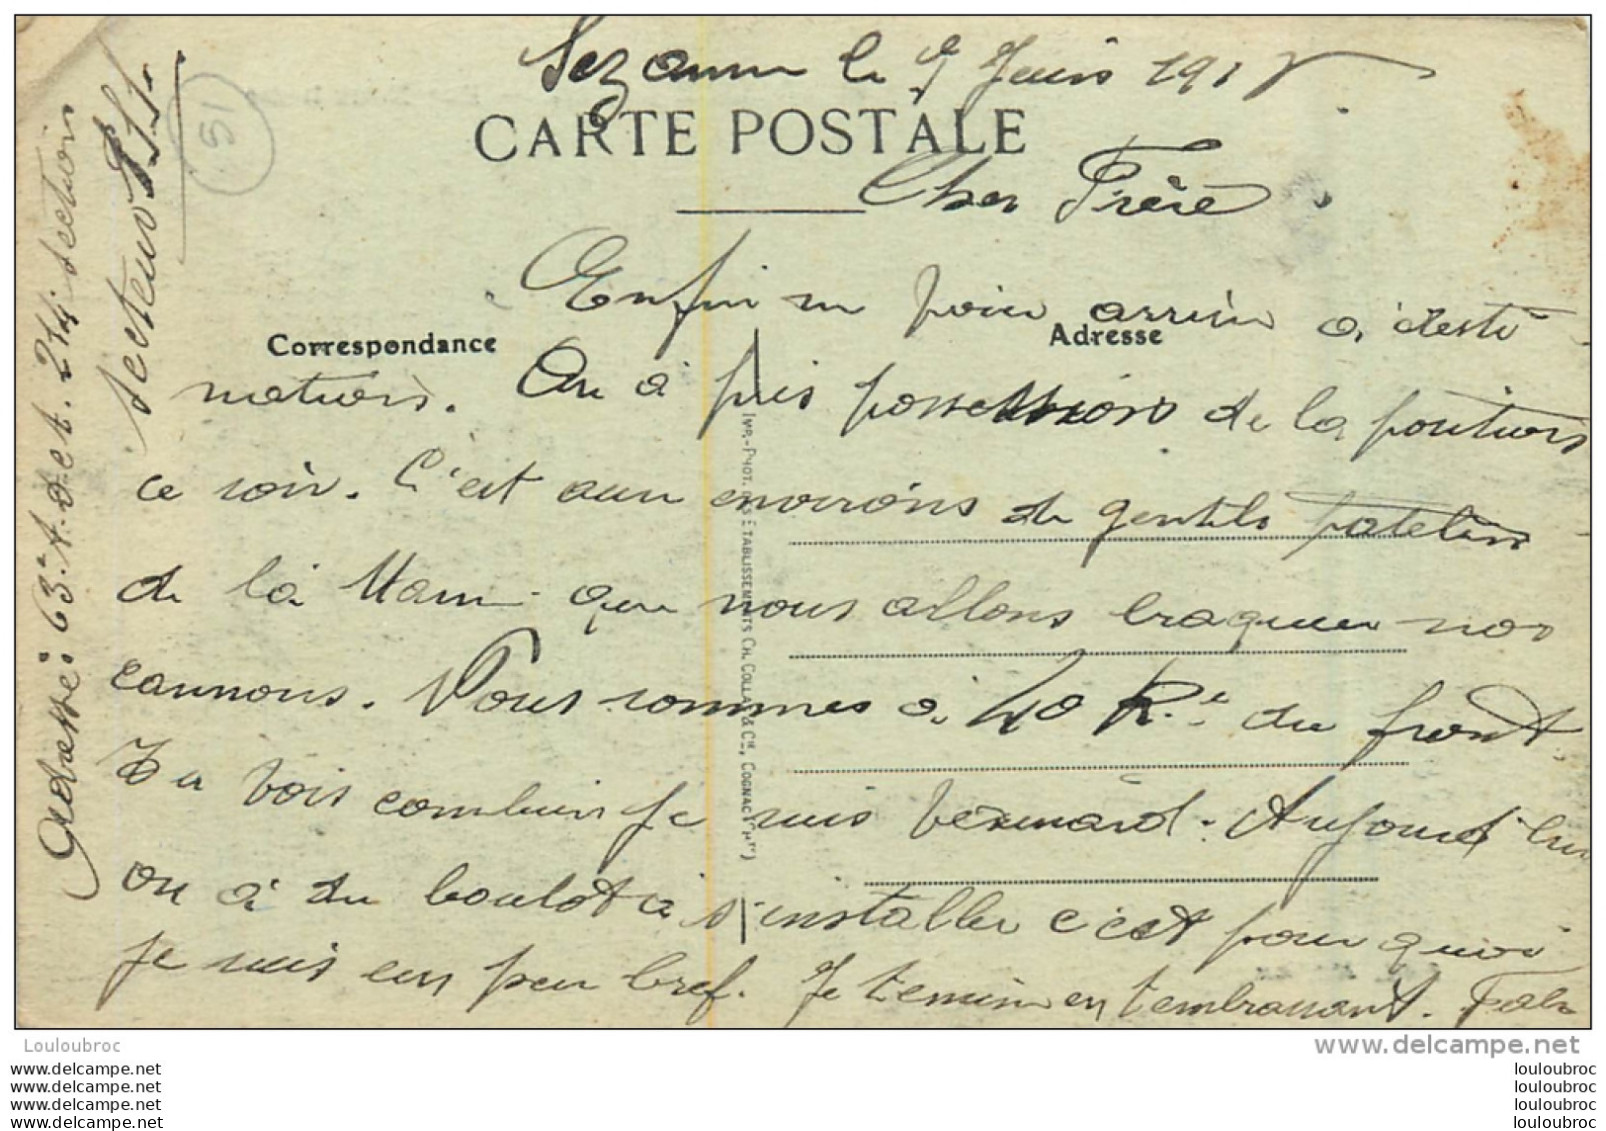 Sezanne le 9 Juin 1918
CARTE POSTALE
Cher Frère
Enfin me voici arrivé à desti
Correspondance
Adresse
nation. On à pris possession de la position
ce soir. C'est aux environs de gentils patelins
de la Marne que nous allons braquer nos
cannons. Nous sommes à 40 K. du front
Tu vois combien je suis veinard. Aujourd'hui
on à du boulot à s'installer c'est pourquoi
je suis un peu bref. Je termine en t'embrassant.
Adresse: 63e A. de T. 21e section
secteur
51
IMP.-PHOT. DES ETABLISSEMENTS CH. COLLAS & Cie, COGNAC
Louloubroc
www.delcampe.net
www.delcampe.net
www.delcampe.net
www.delcampe.net
www.delcampe.net
louloubroc
louloubroc
louloubroc
louloubroc